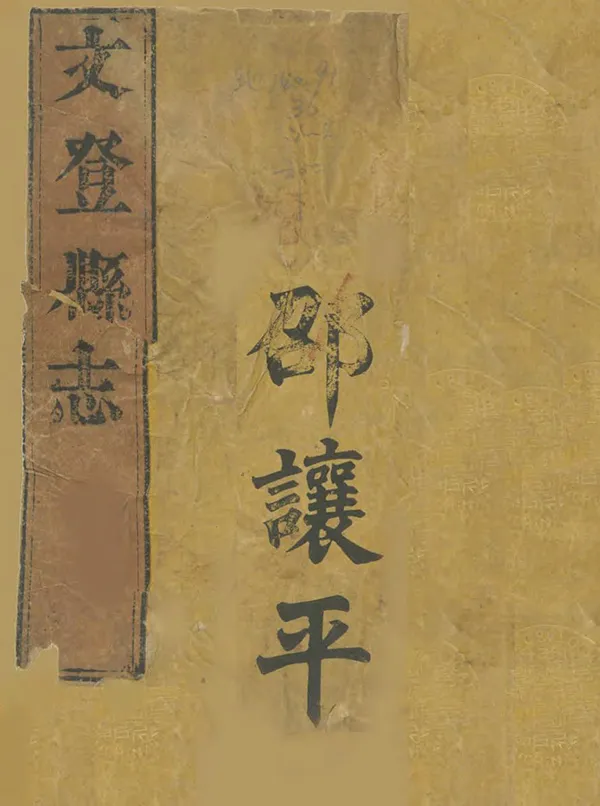 文登縣志
邵讓平